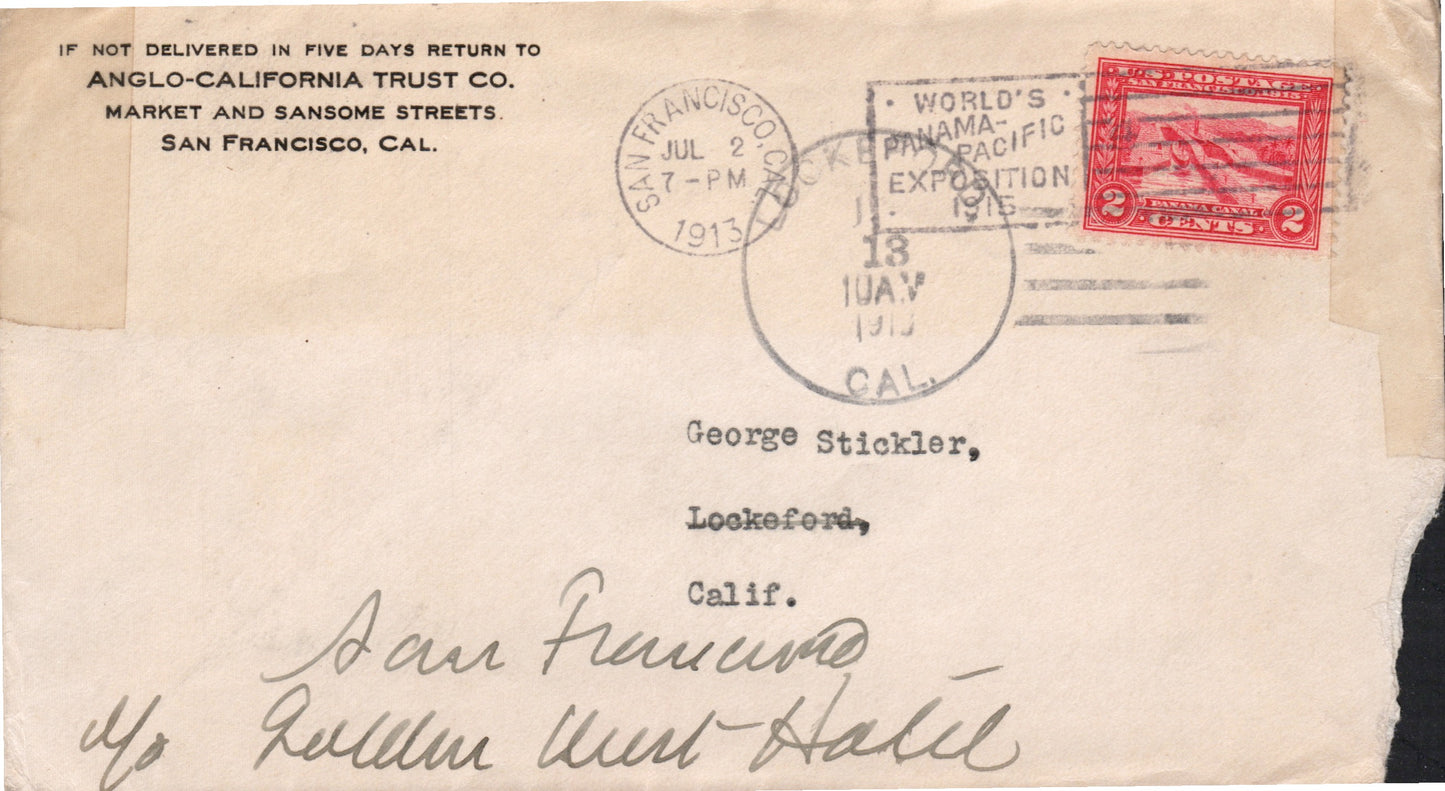 IF NOT DELIVERED IN FIVE DAYS RETURN TO
ANGLO-CALIFORNIA TRUST CO.
MARKET AND SANSOME STREETS.
SAN FRANCISCO, CAL.
SAN FRANCISCO, CAL.
JUL 2
7-PM
1913
WORLD'S
PANAMA-
PACIFIC
EXPOSITION
1915
U.S. POSTAGE
SAN FRANCISCO 1915
PANAMA CANAL
2 CENTS 2
13
10 AM
CAL.
George Stickler,
Lockeford,
Calif.
San Francisco
c/o Golden West Hotel